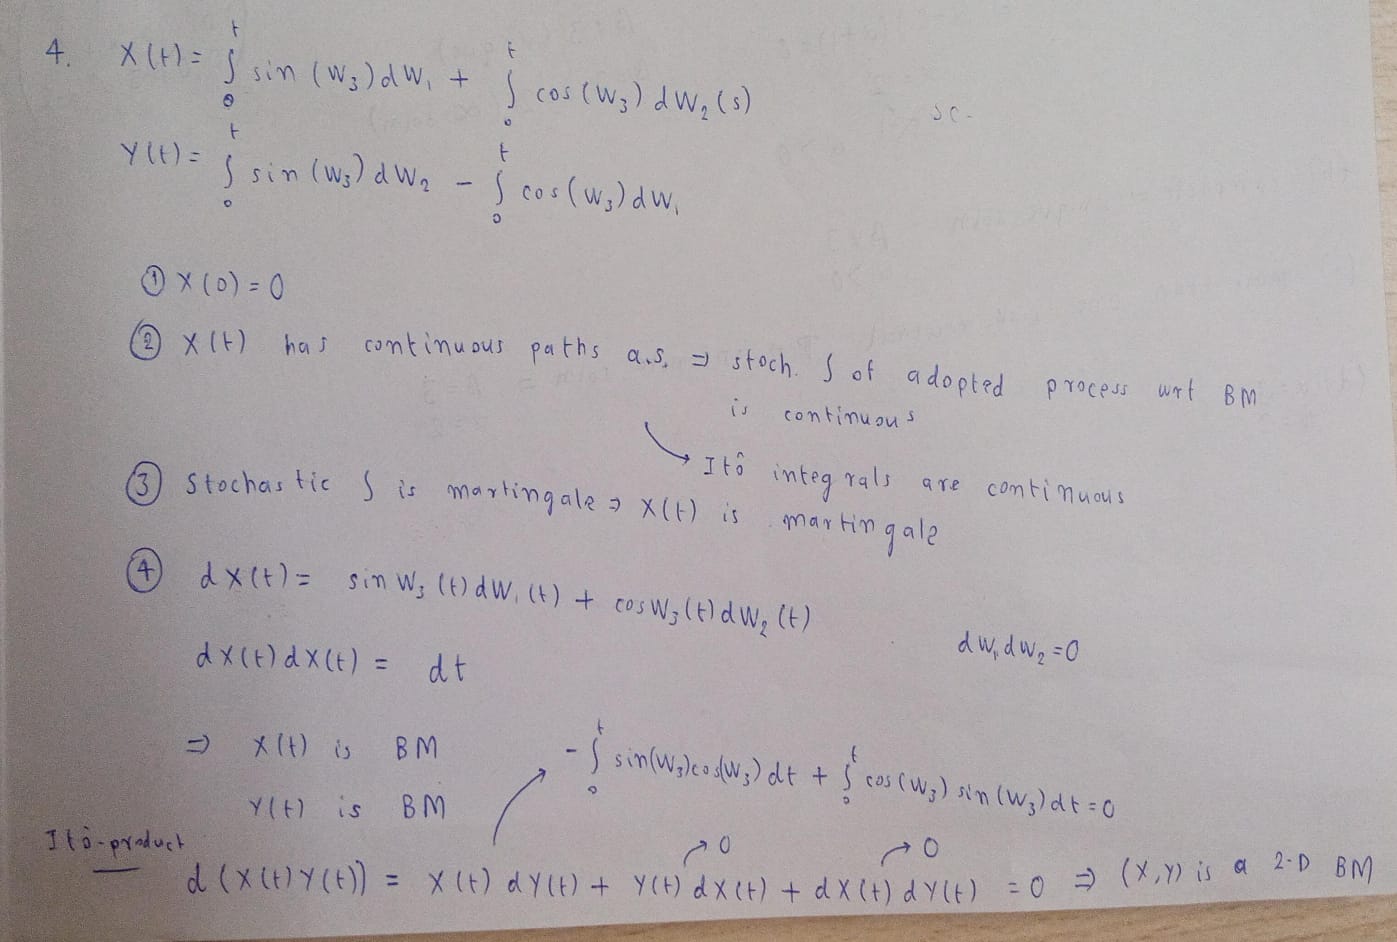 4. X(t) = ∫₀ᵗ sin(W₃)dW₁ + ∫₀ᵗ cos(W₃)dW₂(s)
Y(t) = ∫₀ᵗ sin(W₃)dW₂ - ∫₀ᵗ cos(W₃)dW₁
① X(0) = 0
② X(t) has continuous paths a.s. ⇒ stoch. ∫ of adopted process wrt BM
is continuous
↘ Itô integrals are continuous
③ Stochastic ∫ is martingale ⇒ X(t) is martingale
④ dX(t) = sin W₃(t)dW₁(t) + cos W₃(t)dW₂(t)
dW₁dW₂ = 0
dX(t)dX(t) = dt
⇒ X(t) is BM
-∫₀ᵗ sin(W₃)cos(W₃)dt + ∫₀ᵗ cos(W₃)sin(W₃)dt = 0
Y(t) is BM
Itô-product
d(X(t)Y(t)) = X(t)dY(t) + Y(t)dX(t) + dX(t)dY(t) = 0 ⇒ (X,Y) is a 2-D BM
→0 →0